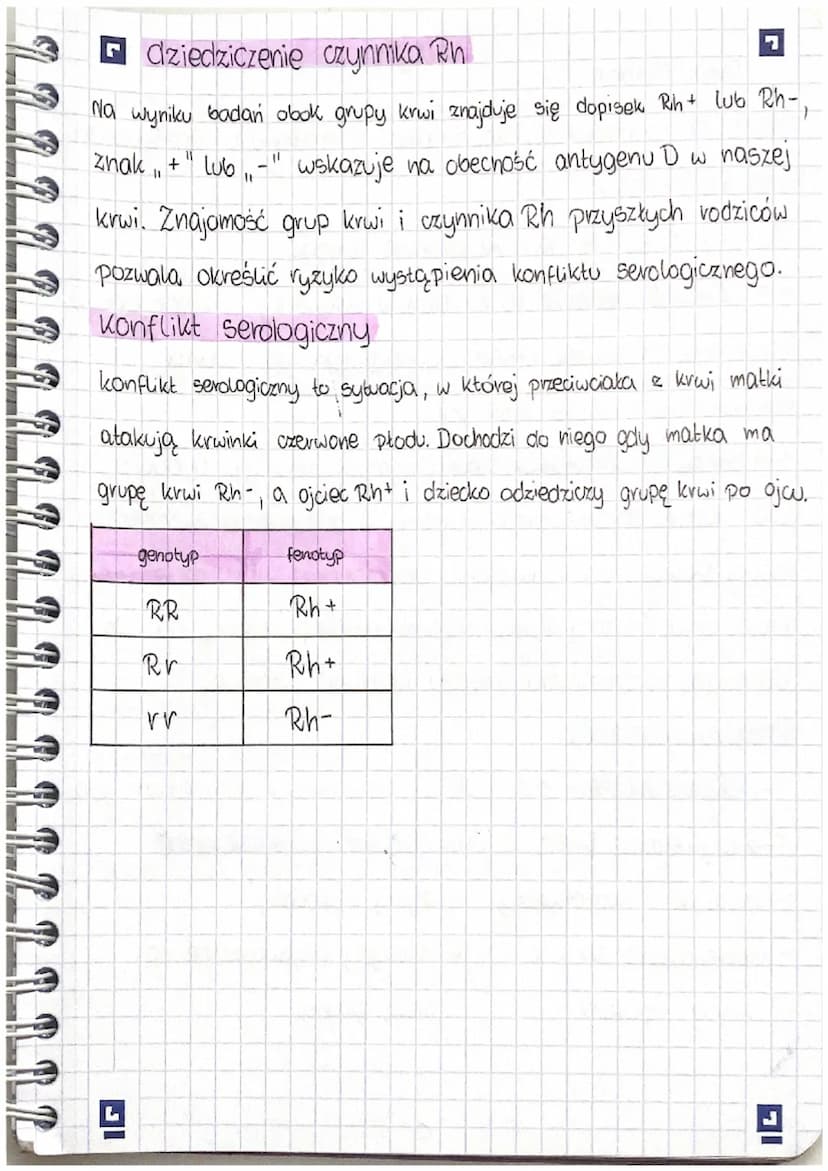 dziedziczenie czynnika Rh
Na wyniku badań obok grupy krwi znajduje się dopisek Rh+ lub Rh-,
znak „+" lub „-" wskazuje na obecność antygenu D w naszej
krwi. Znajomość grup krwi i czynnika Rh przyszłych rodziców
pozwala określić ryzyko wystąpienia konfliktu serologicznego.
Konflikt serologiczny
konflikt serologiczny to sytuacja, w której przeciwciała z krwi matki
atakują krwinki czerwone płodu. Dochodzi do niego gdy matka ma
grupę krwi Rh-, a ojciec Rh+ i dziecko odziedziczy grupę krwi po ojcu.
genotyp fenotyp
RR Rh+
Rr Rh+
rr Rh-